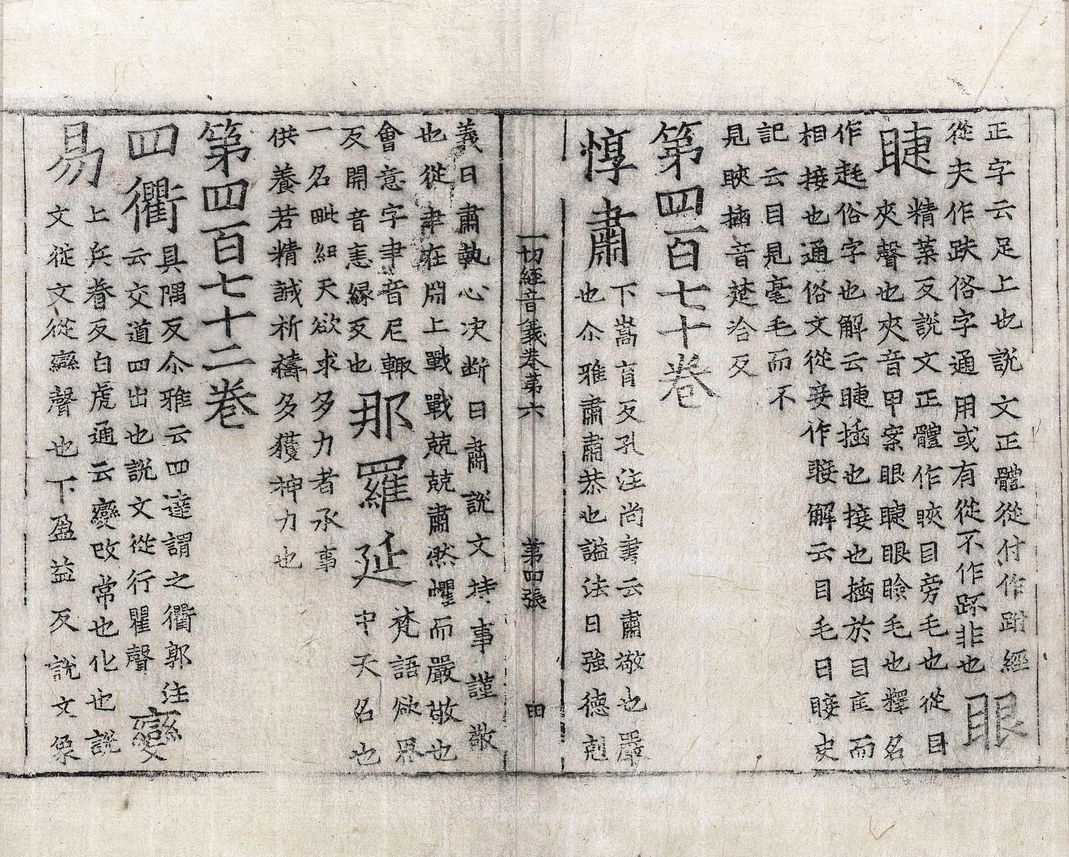 正字云足上也說文正體從付作跗經
從夫作趺俗字通用或有從不作趺非也
眼
睫
精葉反說文正體作䀹目旁毛也從目
夾聲也夾音甲案眼睫眼瞼毛也釋名
作𨄔俗字也解云睫插也接也插於目匡而
相接也通俗文從妾作𦖋解云目毛曰䀹史
記云目見毫毛而不
見䀹插音楚洽反
第四百七十卷
惇肅
下嵩育反孔注尚書云肅敬也嚴
也尒雅肅肅恭也謚法曰強德剋
一切經音義卷第六 第四張 田
義曰肅執心決断曰肅說文持事謹敬
也從𦘒在𣶒上戰戰兢兢肅然懼而嚴敬也
會意字𦘒音尼輒
反𣶒音恚緣反也
那羅延
梵語欲界
中天名也
一名毗紐天欲求多力者承事
供養若精誠祈禱多獲神力也
第四百七十二卷
四衢
具隅反尒雅云四達謂之衢郭注
云交道四出也說文從行瞿聲
變
易
上兵眷反白虎通云變改常也化也說
文從攵從䜌聲也下盈益反說文象